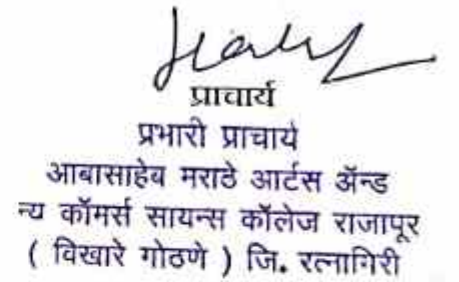 प्राचार्य
प्रभारी प्राचार्य
आबासाहेब मराठे आर्टस ॲन्ड
न्य कॉमर्स सायन्स कॉलेज राजापूर
( विखारे गोठणे ) जि. रत्नागिरी